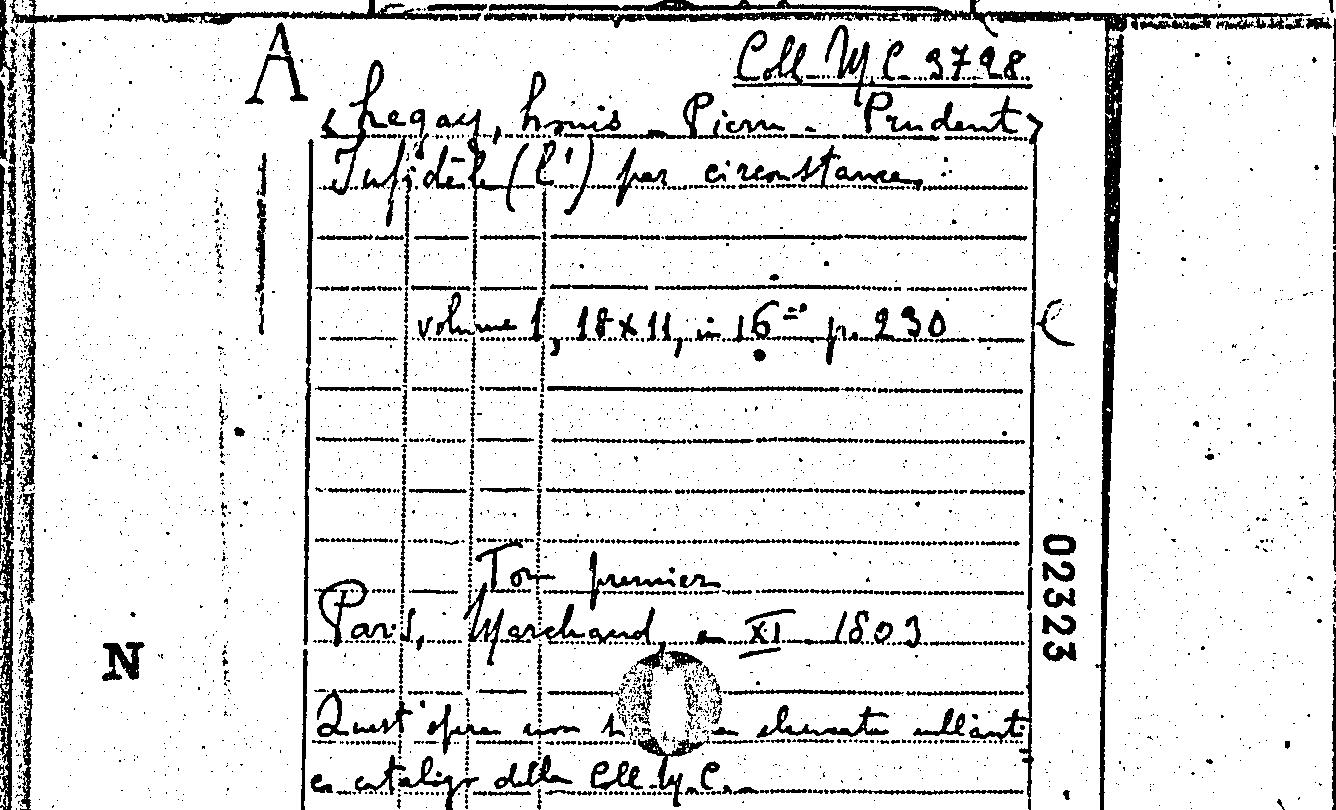 A
Coll. M.C. 3728
<Legay, Louis - Pierre - Prudent>
Infidèle (l') par circonstance.
volume 1, 18x11, in 16=° p. 230
Tom premier
Paris, Marchand, an XI - 1803
02323
N
Quest'opera non elencata nell'antico
catalogo della Coll. M.C.